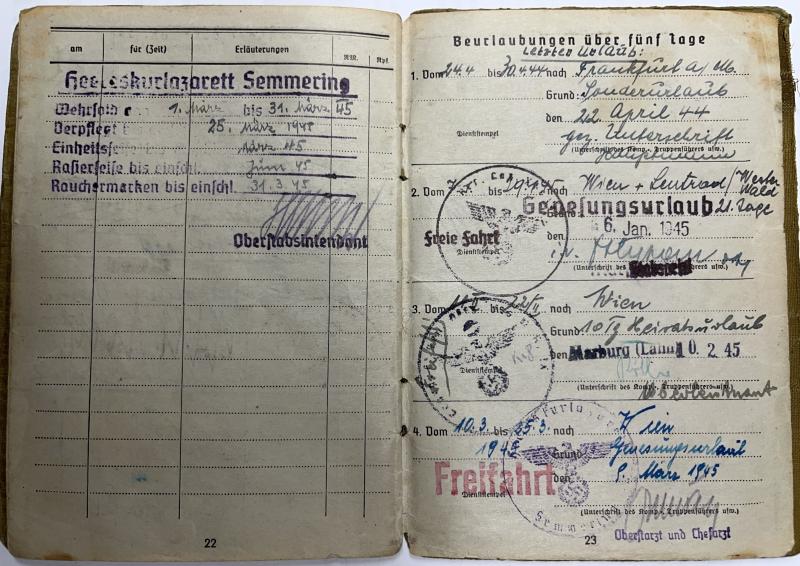 am für (Zeit) Erläuterungen RM. Rpf.
Heereskurlazarett Semmering
Wehrsold 1. März bis 31. März 45
Verpflegt 25. März 1945
Einheitsseife März 45
Rasierseife bis einschl. Juni 45
Rauchermarken bis einschl. 31.3.45
Oberstabsintendant
22
Beurlaubungen über fünf Tage
Letzter Urlaub:
1. Vom 24.4 bis nach Frankfurt a/M.
Grund: Sonderurlaub
den 22 April 44
gez. Unterschrift
Dienststempel
(Unterschrift des Komp.-, Truppenführers usw.)
Hauptmann
2. Vom bis nach Wien +
Wald
Genesungsurlaub 21. Tage
Freie Fahrt
den 6. Jan. 1945
Dienststempel
(Unterschrift des führers usw.)
3. Vom bis 22/II nach Wien
Grund: 10 Tg Heiratsurlaub
den Marburg (Lahn) 10. 2. 45
Dienststempel
(Unterschrift des Komp.-, Truppenführers usw.)
Oberleutnant
4. Vom 10.3. bis 25.3. nach Wien
1945 Grund Genesungsurlaub
Freifahrt
den 9. März 1945
Dienststempel
Semmering
(Unterschrift des Komp.-, Truppenführers usw.)
23
Oberstarzt und Chefarzt